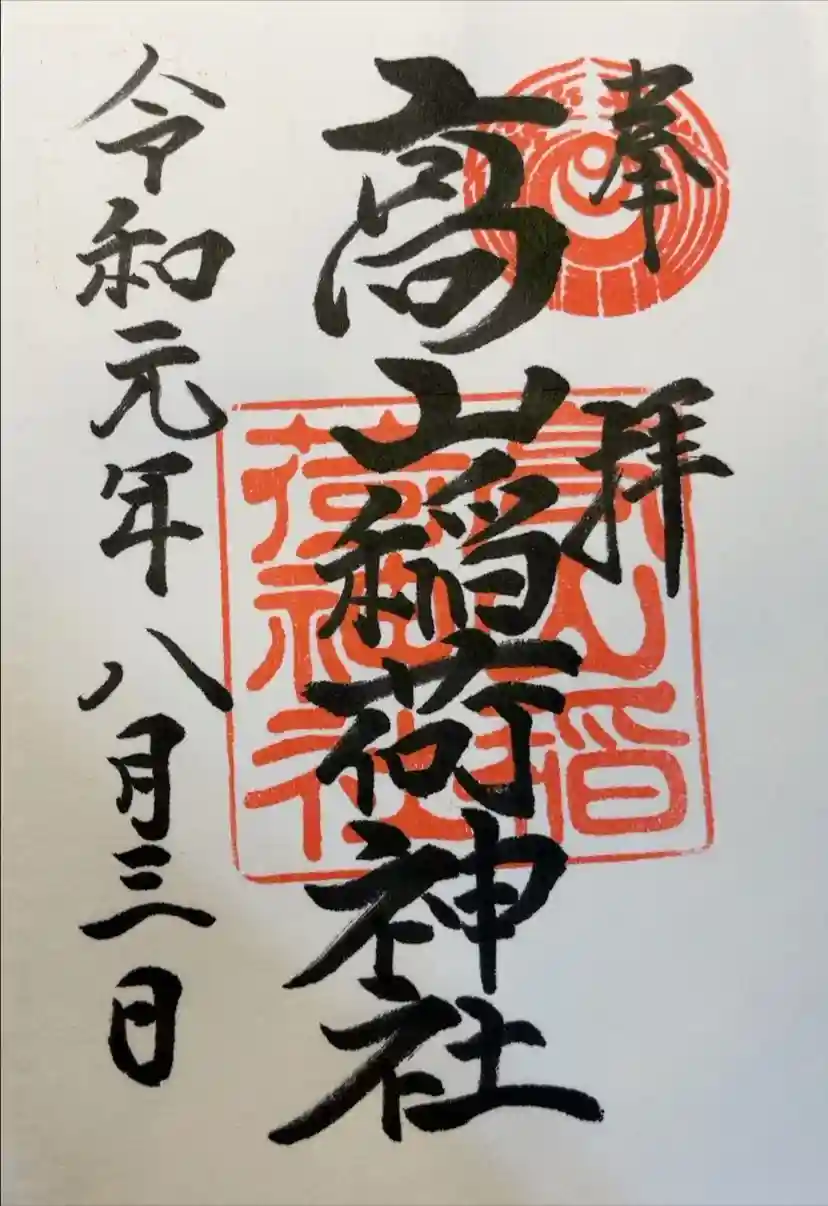 奉拝
高山稲荷神社
令和元年八月三日
高山稲
荷神社